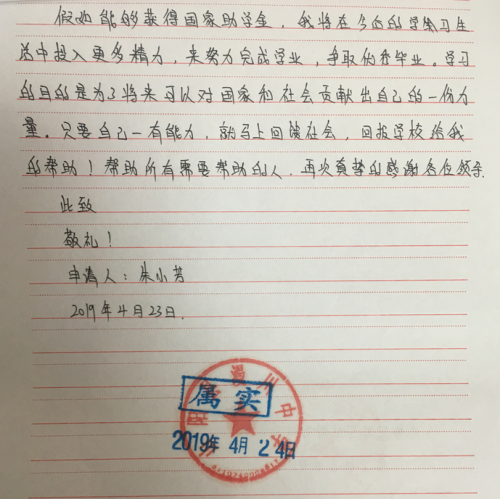 假如能够获得国家助学金，我将在今后的学习生
活中投入更多精力，来努力完成学业，争取优秀毕业。学习
的目的是为了将来可以对国家和社会贡献出自己的一份力
量。只要自己一有能力，就马上回馈社会，回报学校给我
的帮助！帮助所有需要帮助的人，再次真挚的感谢各位领导.
此致
敬礼！
申请人：朱小芳
2019年4月23日.
川中
属实
2019年 4月 24日